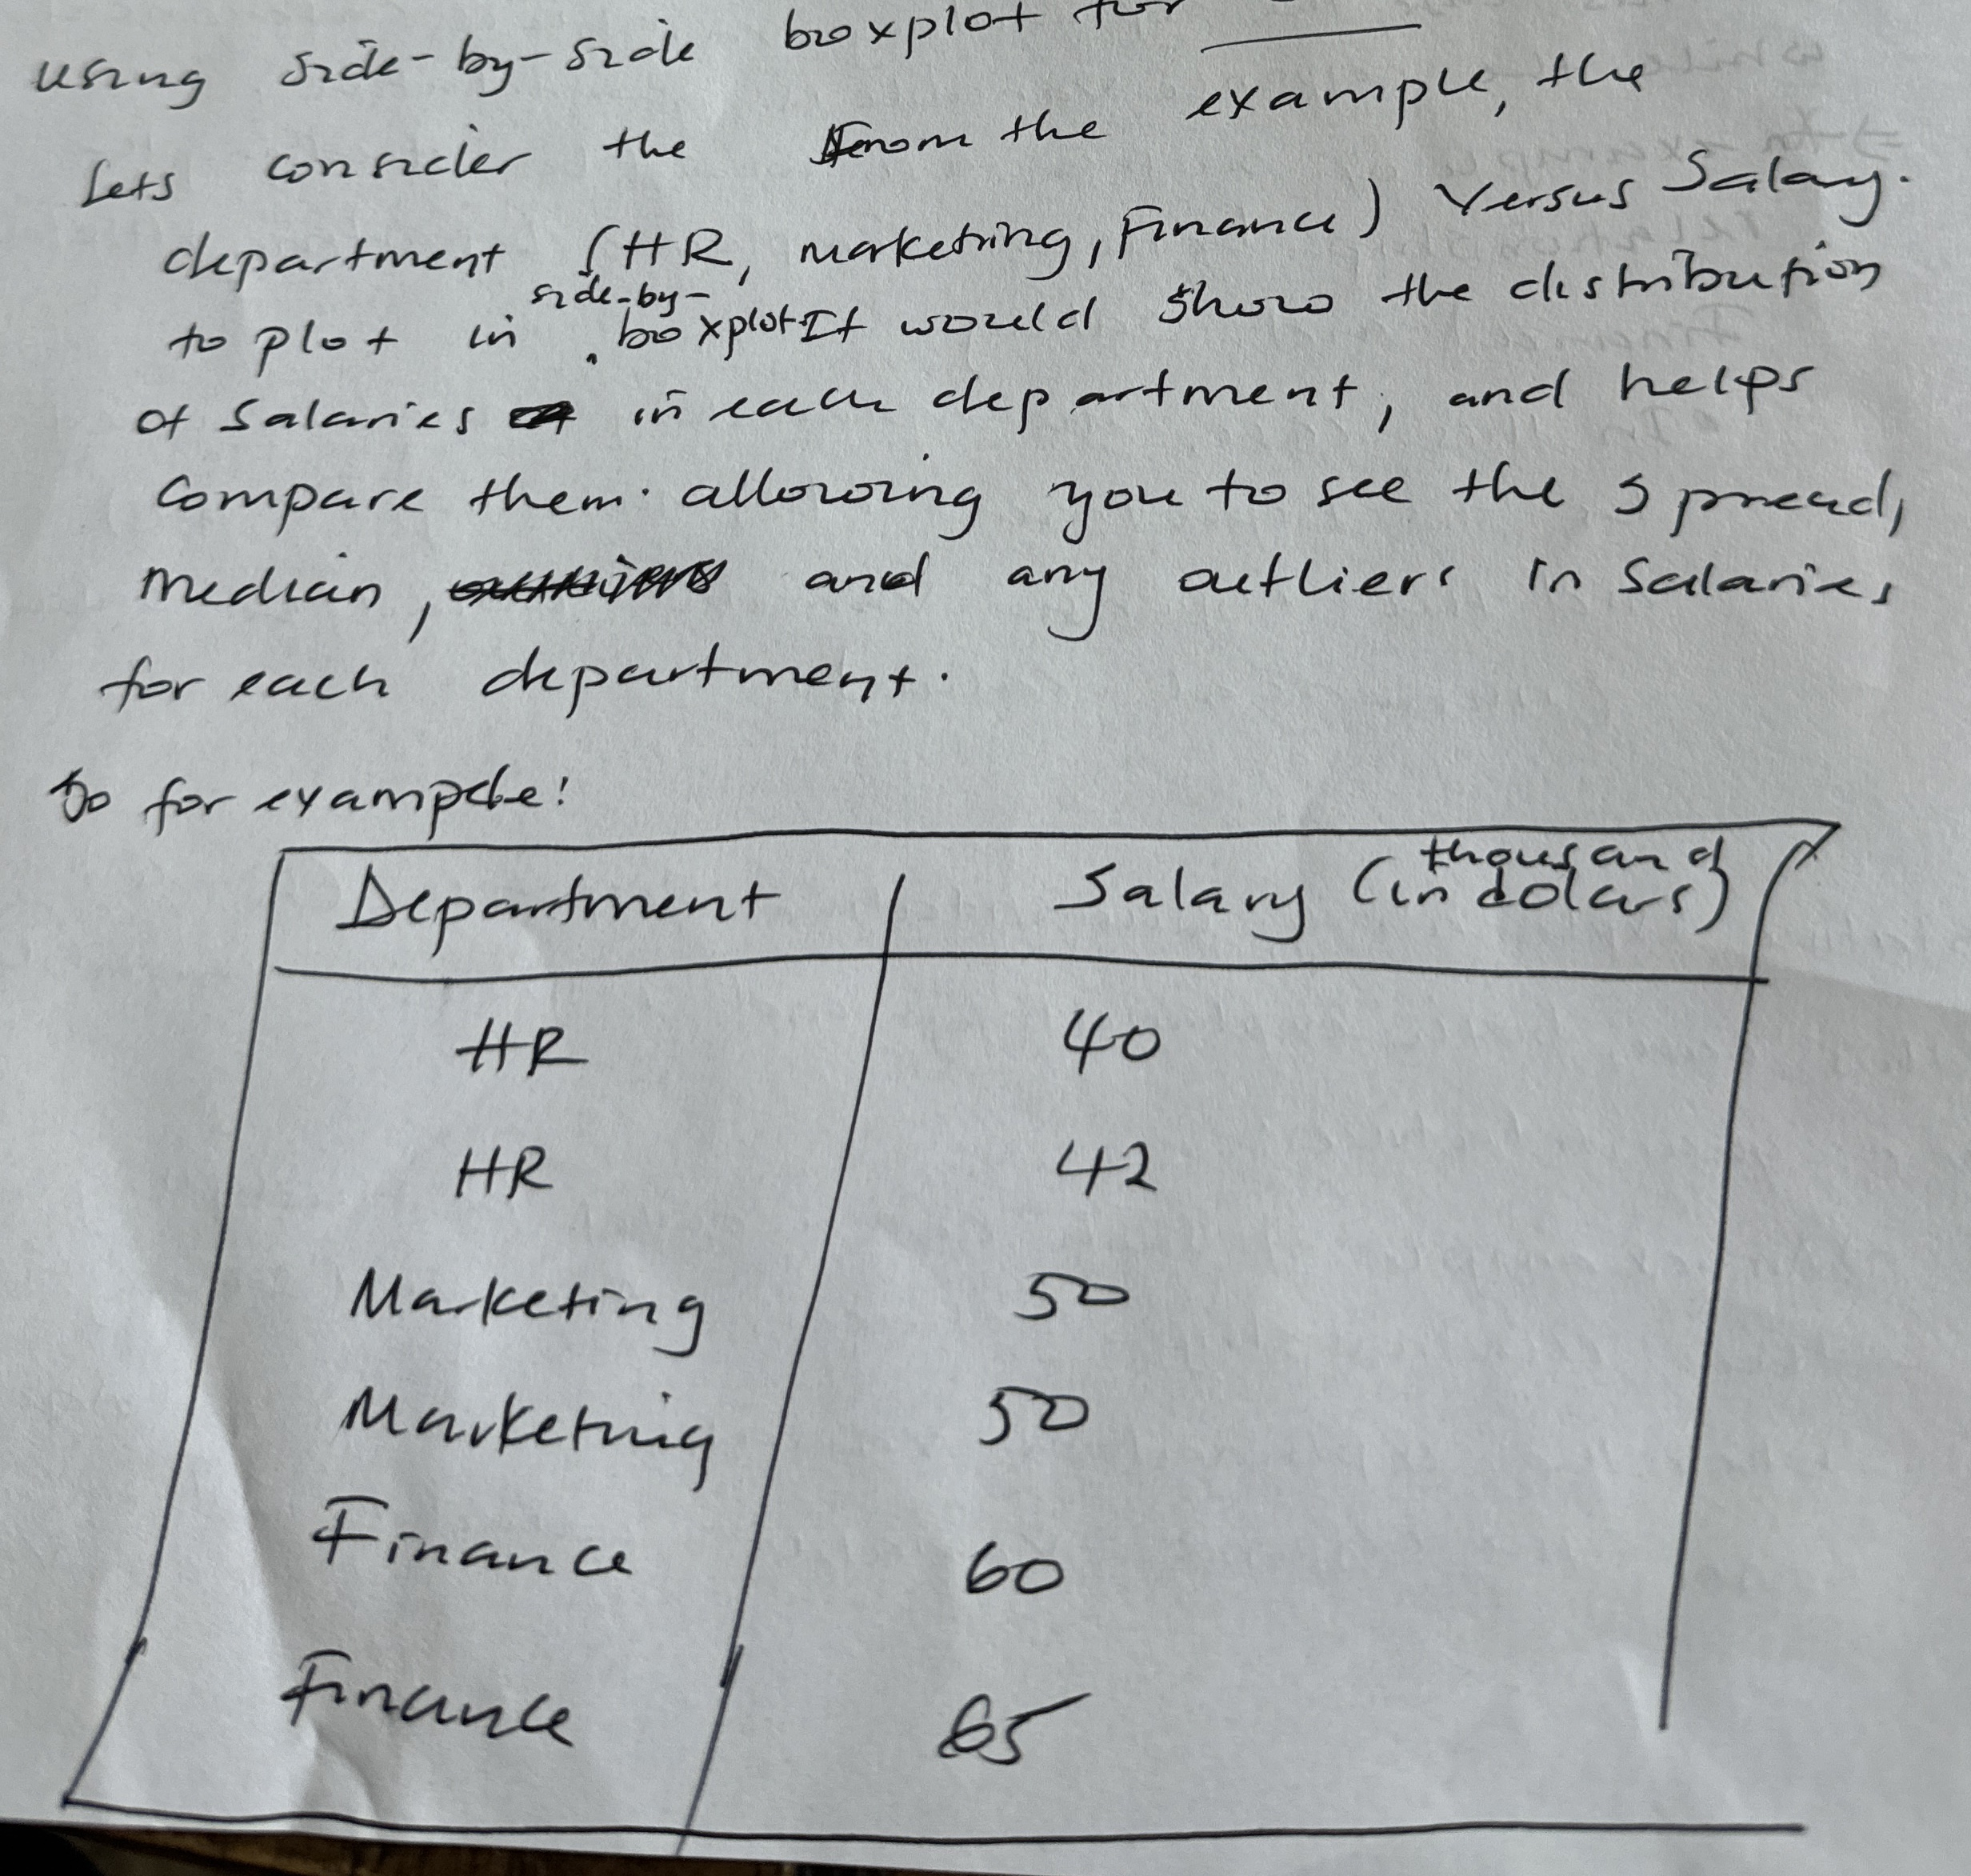 using side-by-side boxplot for
Lets consider the From the example, the
department (HR, marketing, Finance) Versus Salary.
to plot in side-by- boxplot. It would show the distribution
of Salaries in each department, and helps
Compare them. allowing you to see the spread,
Median, and any outliers in Salaries
for each department.
So for example:
Department Salary (in thousand dolars)
HR 40
HR 42
Marketing 50
Marketing 50
Finance 60
Finance 65